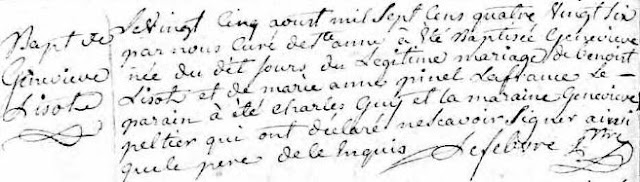 Bapt de
Genevieve
Lisote
Le vingt cinq aoust mil sept cens quatre vingt six
par nous Curé de Ste anne à été Baptisée Genevieve
née du dit Jour du Legitime mariage de benoit
Lisote et de marie anne pinel Lafrance Le
parain à été Charles Guy et la maraine Genevieve
peltier qui ont declaré ne scavoir Signer ainsi
que le pere de ce Enquis Lefebvre Ptre